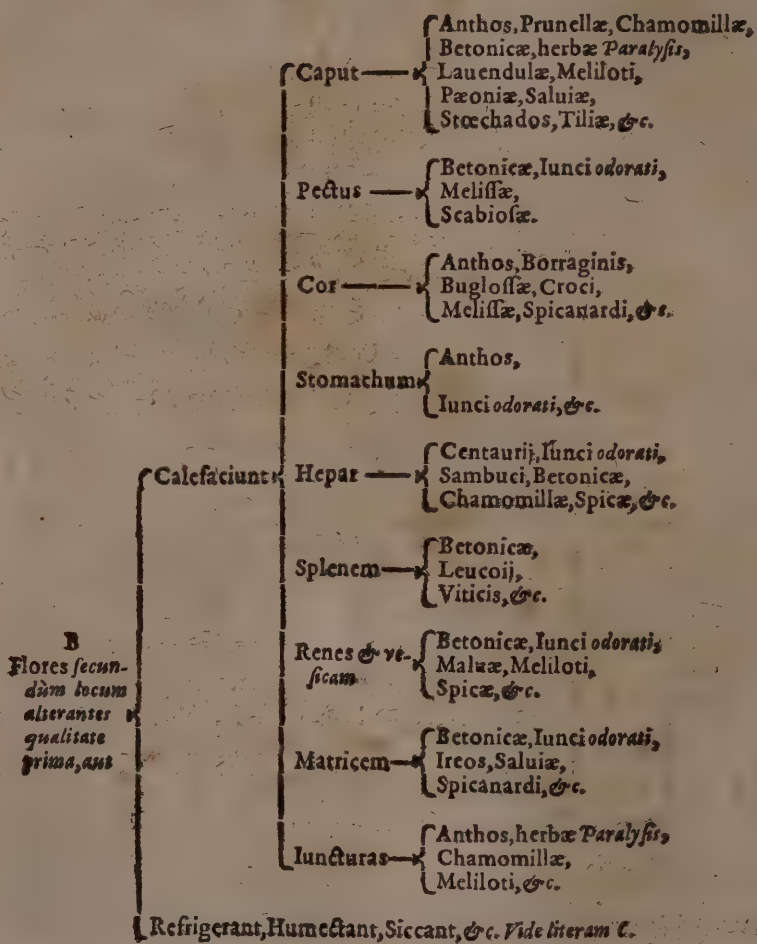 B
Flores secun-
dùm locum
alterantes
qualitate
prima, aut
Calefaciunt
Caput
Anthos, Prunellæ, Chamomillæ,
Betonicæ, herbæ Paralysis,
Lauendulæ, Meliloti,
Pæoniæ, Saluiæ,
Stœchados, Tiliæ, &c.
Pectus
Betonicæ, Iunci odorati,
Melissæ,
Scabiosæ.
Cor
Anthos, Borraginis,
Buglossæ, Croci,
Melissæ, Spicanardi, &c.
Stomachum
Anthos,
Iunci odorati, &c.
Hepar
Centaurij, Iunci odorati,
Sambuci, Betonicæ,
Chamomillæ, Spicæ, &c.
Splenem
Betonicæ,
Leucoij,
Viticis, &c.
Renes & ve-
sicam
Betonicæ, Iunci odorati,
Maluæ, Meliloti,
Spicæ, &c.
Matricem
Betonicæ, Iunci odorati,
Ireos, Saluiæ,
Spicanardi, &c.
Iuncturas
Anthos, herbæ Paralysis,
Chamomillæ,
Meliloti, &c.
Refrigerant, Humectant, Siccant, &c. Vide literam C.